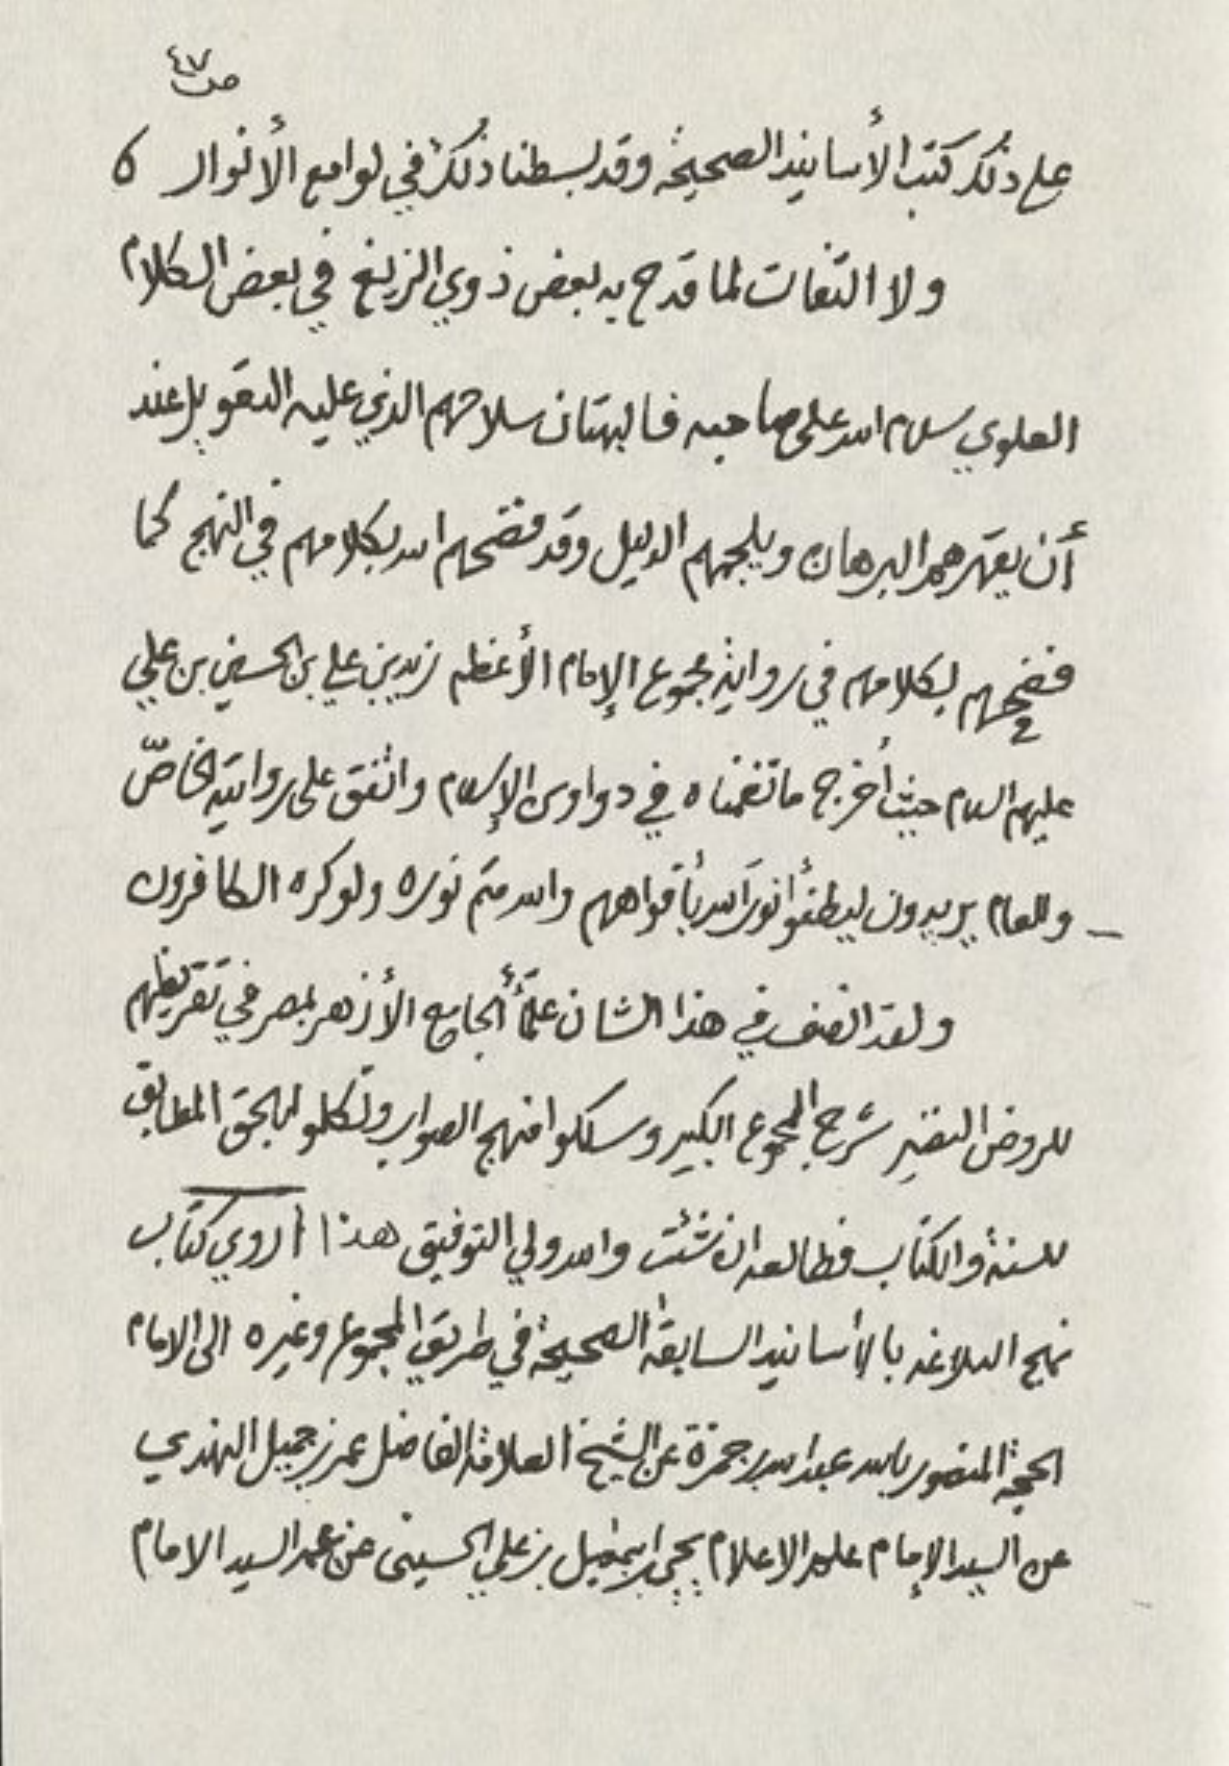 ص ٤٧
على ذلك كتب الأسانيد الصحيحة وقد بسطنا ذلك في لوامع الأنوار ه
ولا التفات لما قدح به بعض ذوي الزيغ في بعض الكلام
العلوي سلام الله على صاحبه فالبهتان سلاحهم الذي عليه التعويل عند
أن يقهرهم البرهان ويلجمهم الدليل وقد فضحهم الله بكلامهم في النهج كما
فضحهم بكلامهم في رواية مجموع الإمام الأعظم زيد بن علي بن الحسين بن علي
عليهم السلام حيث أخرج ما تضمناه في دواوين الإسلام واتفق على روايته الخاصّ
والعام يريدون ليطفؤا نور الله بأفواههم والله متم نوره ولو كره الكافرون
ولقد انصف في هذا الشان علمأ الجامع الأزهر بمصر في تقريظهم
للروض النضير شرح المجموع الكبير وسلكوا منهج الصواب وتكلموا بالحق المطابق
للسنة والكتاب فطالعه ان شئت والله ولي التوفيق هذا أروي كتاب
نهج البلاغه بالأسانيد السابقة الصحيحة في طريق المجموع وغيره الى الامام
الحجة المنصور بالله عبدالله بن حمزة عن الشيخ العلامة الفاضل عمر بن جميل الهندي
عن السيد الإمام علم الاعلام يحيى بن اسمعيل بن علي الحسيني عن عمه السيد الامام